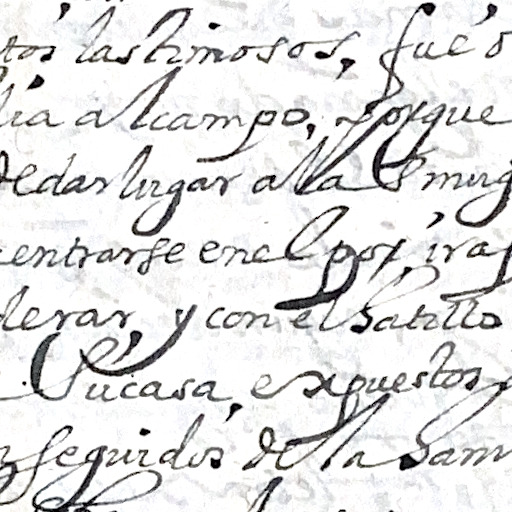 tos lastimosos, fué o
lia al campo, porque
de dar lugar a la S mug
entrarse en el por, iras
lerar, y con el Satillo
Su casa, expuestos
nseguidos de la Sam